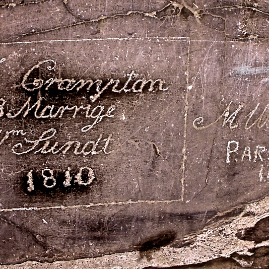 Crampton
B Marrige
Wm Sundt
1810
M W
PAR